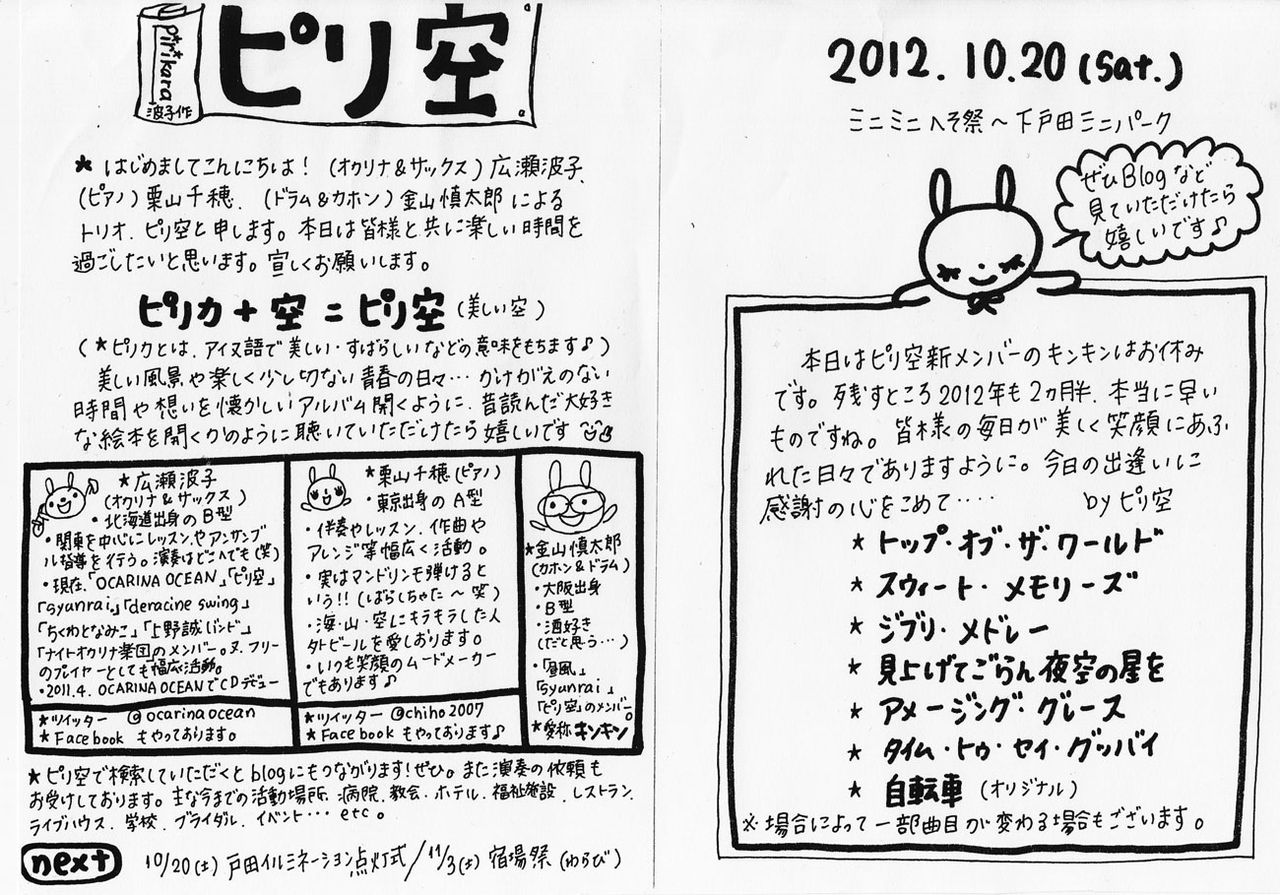 pirikara
波子作
ピリ空
★ はじめましてこんにちは！ (オカリナ&サックス) 広瀬波子、
(ピアノ) 栗山千穂、 (ドラム&カホン) 金山慎太郎 による
トリオ、ピリ空と申します。本日は皆様と共に楽しい時間を
過ごしたいと思います。宜しくお願いします。
ピリカ + 空 = ピリ空 (美しい空)
(★ピリカとは、アイヌ語で美しい・すばらしいなどの意味をもちます♪)
美しい風景や楽しく少し切ない青春の日々… かけがえのない
時間や想いを懐かしいアルバム開くように、昔読んだ大好き
な絵本を開くかのように聴いていただけたら嬉しいです
★広瀬波子
(オカリナ&サックス)
・北海道出身のB型
・関東を中心にレッスンやアンサンブ
ル指導を行う。演奏はどこへでも(笑)
・現在、「OCARINA OCEAN」「ピリ空」
「syunrai」「deracine swing」
「ちくわとなみこ」「上野誠バンド」
「ナイトオカリナ楽団」のメンバー。又、フリー
のプレイヤーとしても幅広活動。
・2011.4. OCARINA OCEANでCDデビュー
★ツイッター @ocarinaocean
★Facebook もやっております。
★栗山千穂(ピアノ)
・東京出身の A型
・伴奏やレッスン、作曲や
アレンジ等幅広く活動。
・実はマンドリンも弾けると
いう!! (ばらしちゃた〜笑)
・海・山・空にキラキラした人
タトビールを愛しおります。
・いつも笑顔のムードメーカー
でもあります♪
★ツイッター @chiho2007
★Facebookもやっております♪
★金山慎太郎
(カホン&ドラム)
・大阪出身
・B型
・酒好き
(だと思う…)
・「昼風」
「syunrai」
「ピリ空」のメンバー。
★愛称キンキン
★ピリ空で検索していただくとblogにもつながります！ぜひ。また演奏の依頼も
お受けしております。主な今までの活動場所、病院、教会、ホテル、福祉施設、レストラン、
ライブハウス、学校、ブライダル、イベント… etc。
next 10/20(土) 戸田イルミネーション点灯式/11/3(土) 宿場祭(わらび)
2012.10.20 (Sat.)
ミニミニへそ祭〜下戸田ミニパーク
ぜひBlogなど
見ていただけたら
嬉しいです♪
本日はピリ空新メンバーのキンキンはお休み
です。残すところ2012年も2ヵ月半、本当に早い
ものですね。皆様の毎日が美しく笑顔にあふ
れた日々でありますように。今日の出逢いに
感謝の心をこめて‥‥ by ピリ空
★ トップ・オブ・ザ・ワールド
★ スウィート・メモリーズ
★ ジブリ・メドレー
★ 見上げてごらん夜空の星を
★ アメージング・グレース
★ タイム・トゥ・セイ・グッバイ
★ 自転車 (オリジナル)
※場合によって一部曲目が変わる場合もございます。